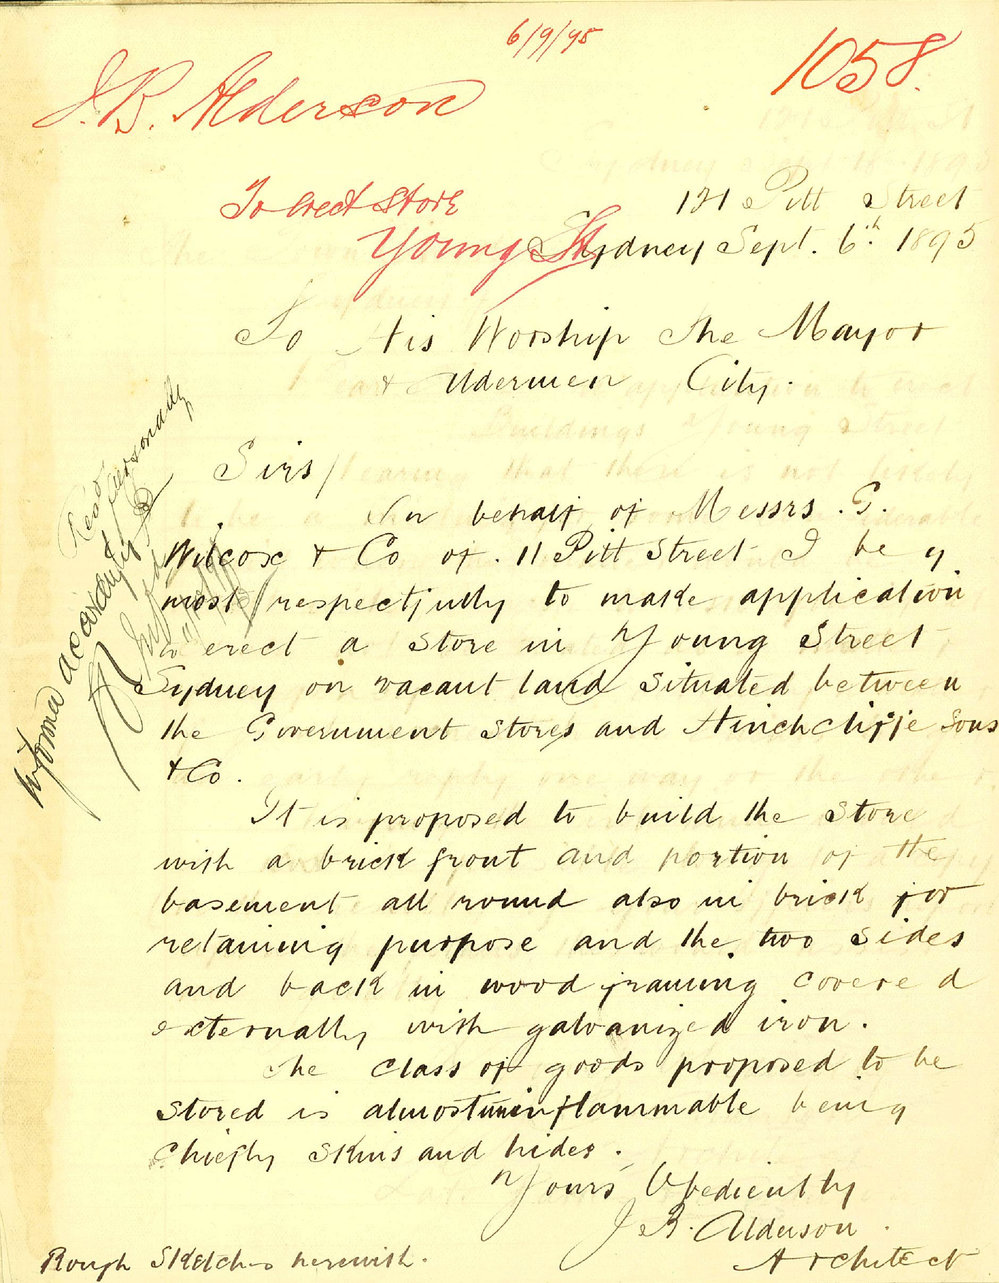 6/9/95
J. B. Alderson
1058.
To Erect Store
Young St
121 Pitt Street
Sydney Sept. 6th. 1895
To His Worship The Mayor
& Aldermen City.
Sirs/
On behalf of Messrs. G.
Wilcox & Co of. 11 Pitt Street I beg
most respectfully to make application
to erect a store in Young Street
Sydney on vacant land situated between
the Government Stores and Hinchcliffe Sons
& Co.
It is proposed to build the store
with a brick front and portion of the
basement all round also in brick for
retaining purpose and the two sides
and back in wood framing covered
externally with galvanized iron.
The class of goods proposed to be
stored is almost uninflammable being
chiefly skins and hides.
Yours Obediently
J. B. Alderson.
Architect
Rough Sketches herewith.
Read
Informed accordingly personally